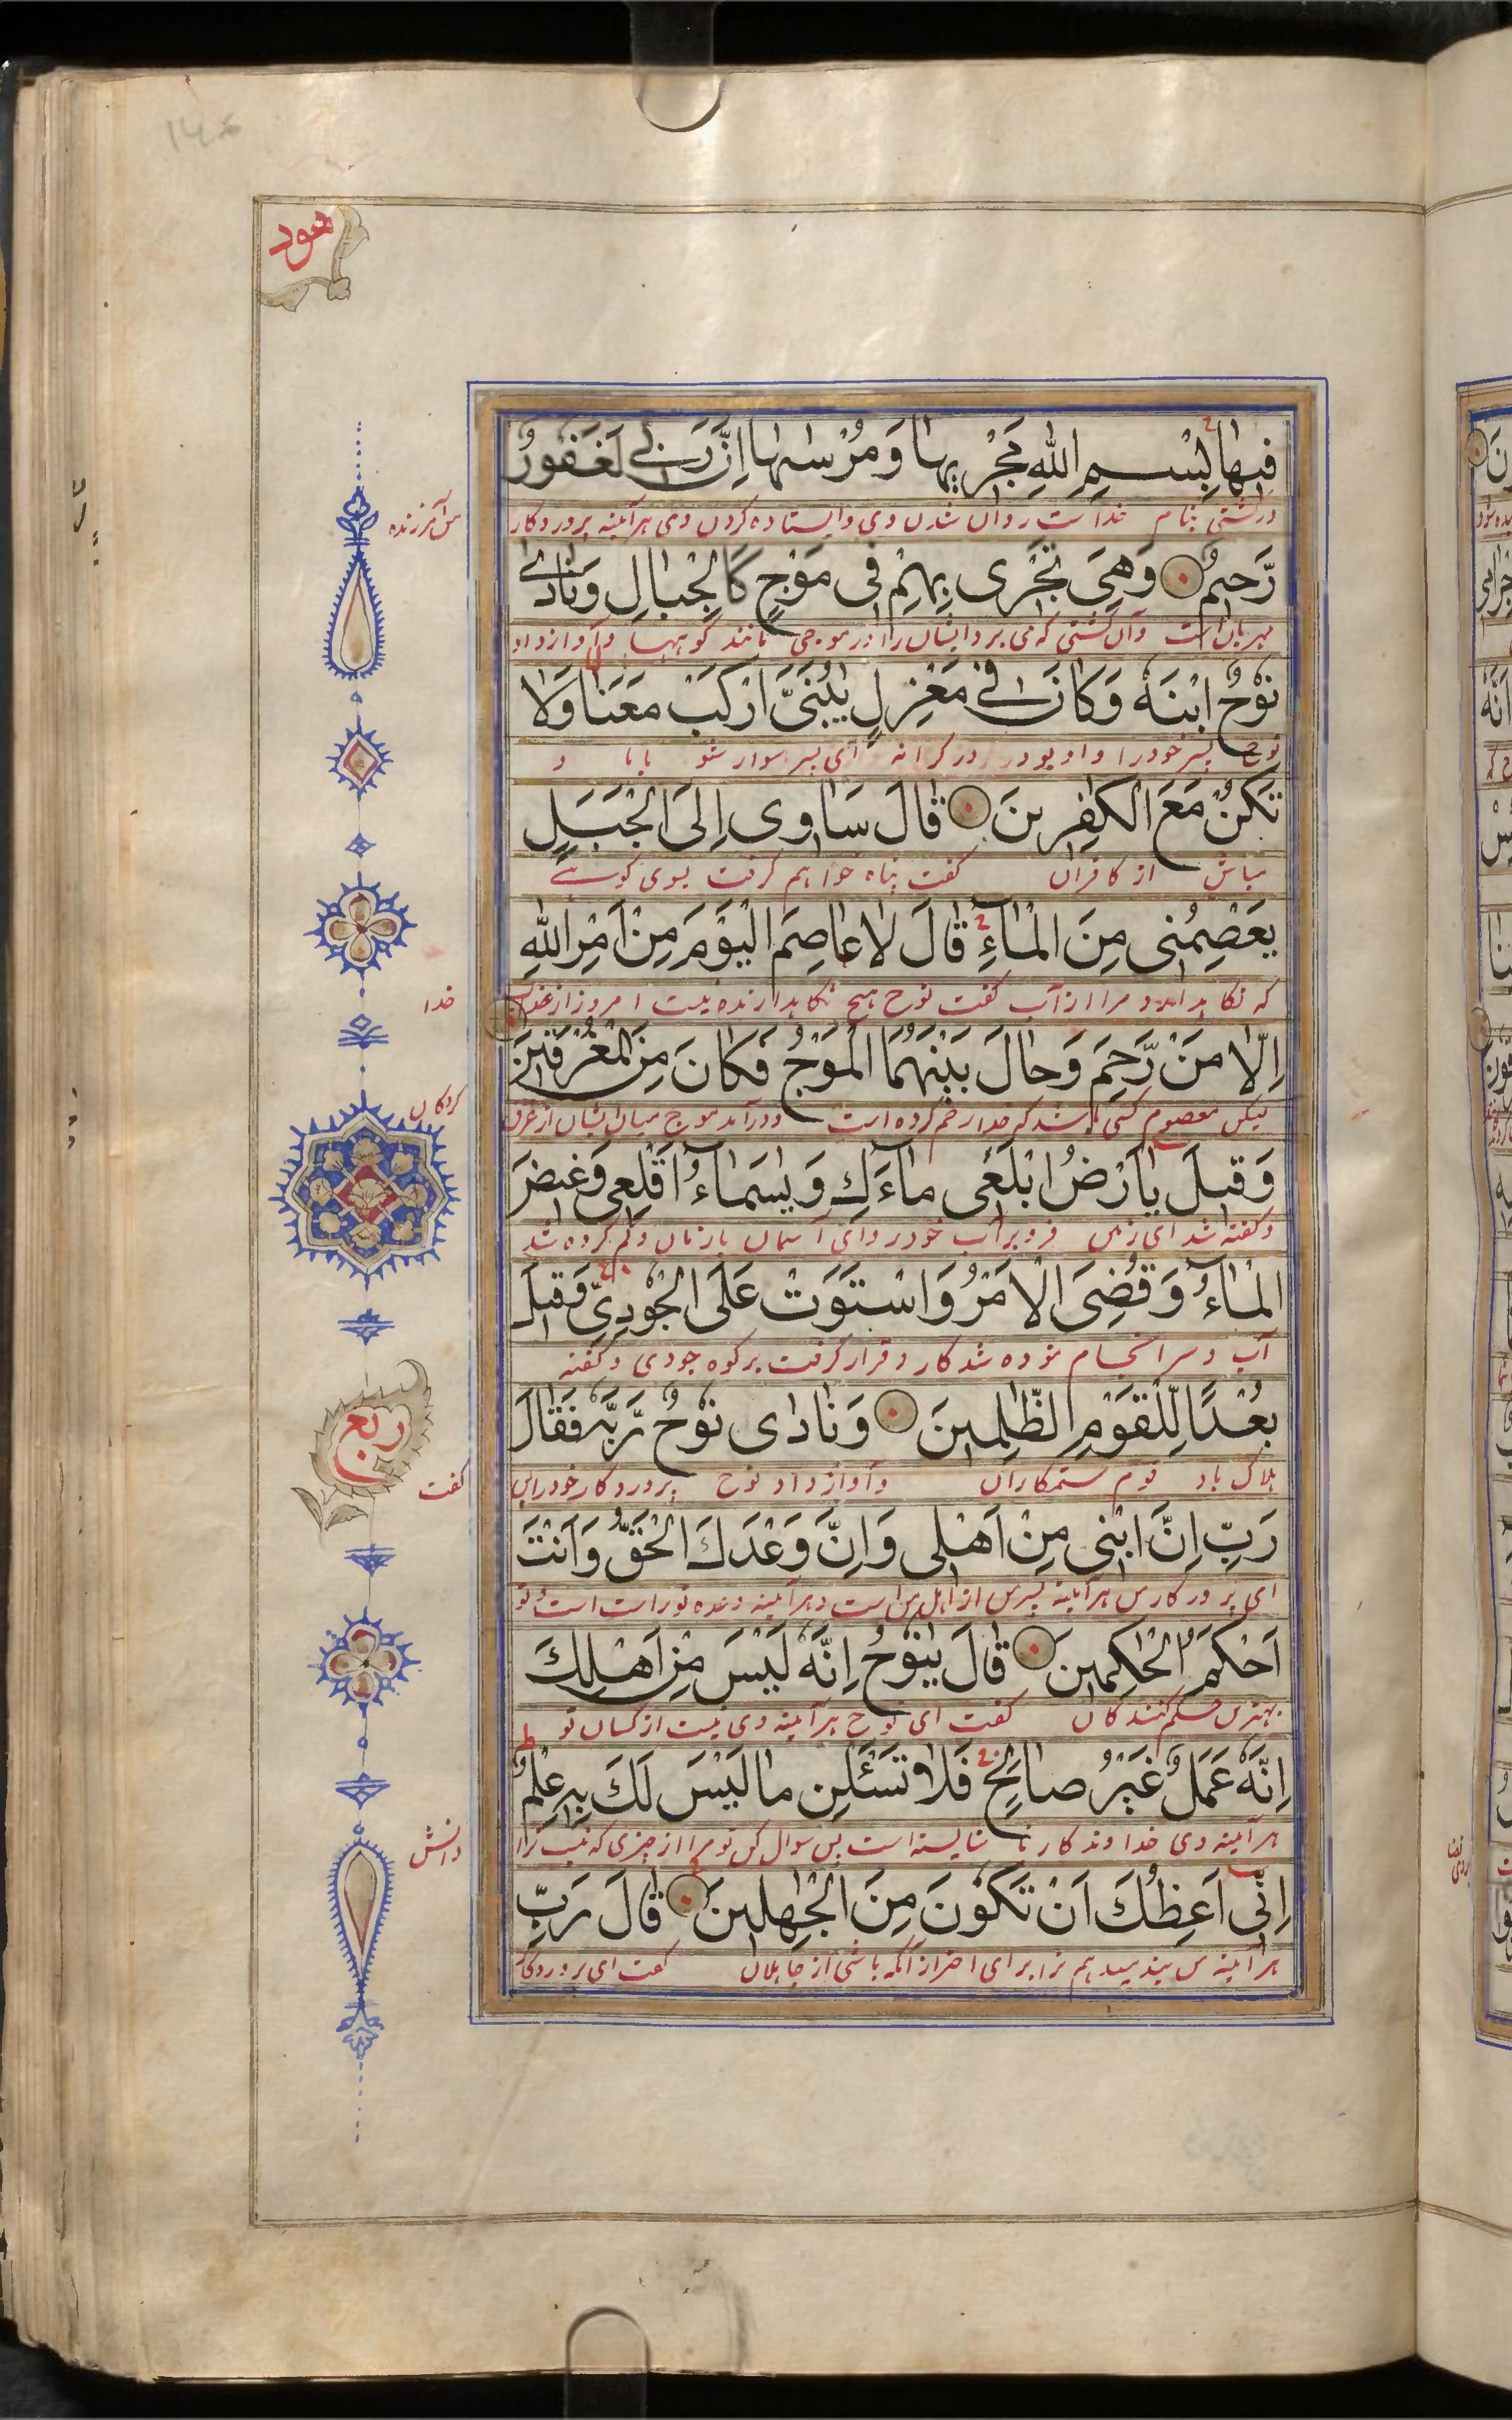 هود
فِيهَا بِسْمِ اللّٰهِ مَجْرٖىهَا وَمُرْسٰىهَا اِنَّ رَبِّى لَغَفُورٌ
در کشتی بنام خداست روان شدن وی وایستاده کردن وی هرآئینه پروردگار
من آمرزنده
رَّحِيمٌ وَهِىَ تَجْرِى بِهِمْ فِى مَوْجٍ كَالْجِبَالِ وَنَادٰى
مهربان است وآن کشتی که می برد ایشان را در موجی مانند کوهها وآواز داد
نُوحٌ ابْنَهٗ وَكَانَ فِى مَعْزِلٍ يٰبُنَىَّ ارْكَبْ مَعَنَا وَلَا
نوح پسر خود را واو بود در کرانه ای پسر سوار شو باما و
تَكُنْ مَعَ الْكٰفِرِينَ قَالَ سَاٰوِى اِلَى الْجَبَلِ
مباش از کافران گفت پناه خواهم گرفت بسوی کوهے
يَعْصِمُنِى مِنَ الْمَآءِ قَالَ لَا عَاصِمَ الْيَوْمَ مِنْ اَمْرِ اللّٰهِ
که نگاهدارد مرا از آب گفت نوح هیچ نگاهدارنده نیست امروز از عذاب
خدا
اِلَّا مَنْ رَّحِمَ وَحَالَ بَيْنَهُمَا الْمَوْجُ فَكَانَ مِنَ الْمُغْرَقِينَ
لیکن معصوم کسی باشد که خدا رحم کرده است ودرآمد موج میان ایشان از غرق
کردگان
وَقِيلَ يٰاَرْضُ ابْلَعِى مَآءَكِ وَيٰسَمَآءُ اَقْلِعِى وَغِيضَ
وگفته شد ای زمین فرو بر آب خود را وای آسمان بازمان وکم کرده شد
الْمَآءُ وَقُضِىَ الْاَمْرُ وَاسْتَوَتْ عَلَى الْجُودِىِّ وَقِيلَ
آب وسرانجام نموده شد کار وقرار گرفت بر کوه جودی وگفته
بُعْدًا لِّلْقَوْمِ الظّٰلِمِينَ وَنَادٰى نُوحٌ رَّبَّهٗ فَقَالَ
هلاک باد قوم ستمکاران وآواز داد نوح پروردگار خود را پس
ربع
گفت
رَبِّ اِنَّ ابْنِى مِنْ اَهْلِى وَاِنَّ وَعْدَكَ الْحَقُّ وَاَنْتَ
ای پروردگار من هرآئینه پسر من از اهل من است وهرآئینه وعده تو راست است وتو
اَحْكَمُ الْحٰكِمِينَ قَالَ يٰنُوحُ اِنَّهٗ لَيْسَ مِنْ اَهْلِكَ
بهترین حکم کنندگان گفت ای نوح هرآئینه وی نیست از کسان تو
اِنَّهٗ عَمَلٌ غَيْرُ صَالِحٍ فَلَا تَسْـَٔلْنِ مَا لَيْسَ لَكَ بِهٖ عِلْمٌ
هرآئینه وی خداوند کار ناشایسته است پس سوال مکن تو مرا از چیزی که نیست ترا
دانش
اِنِّى اَعِظُكَ اَنْ تَكُونَ مِنَ الْجٰهِلِينَ قَالَ رَبِّ
هرآئینه من پند میدهم ترا برای احتراز آنکه باشی از جاهلان گفت ای پروردگار